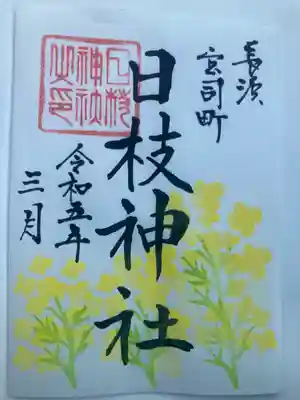 長浜
宮司町
日枝神社
日枝
神社
之印
令和五年
三月